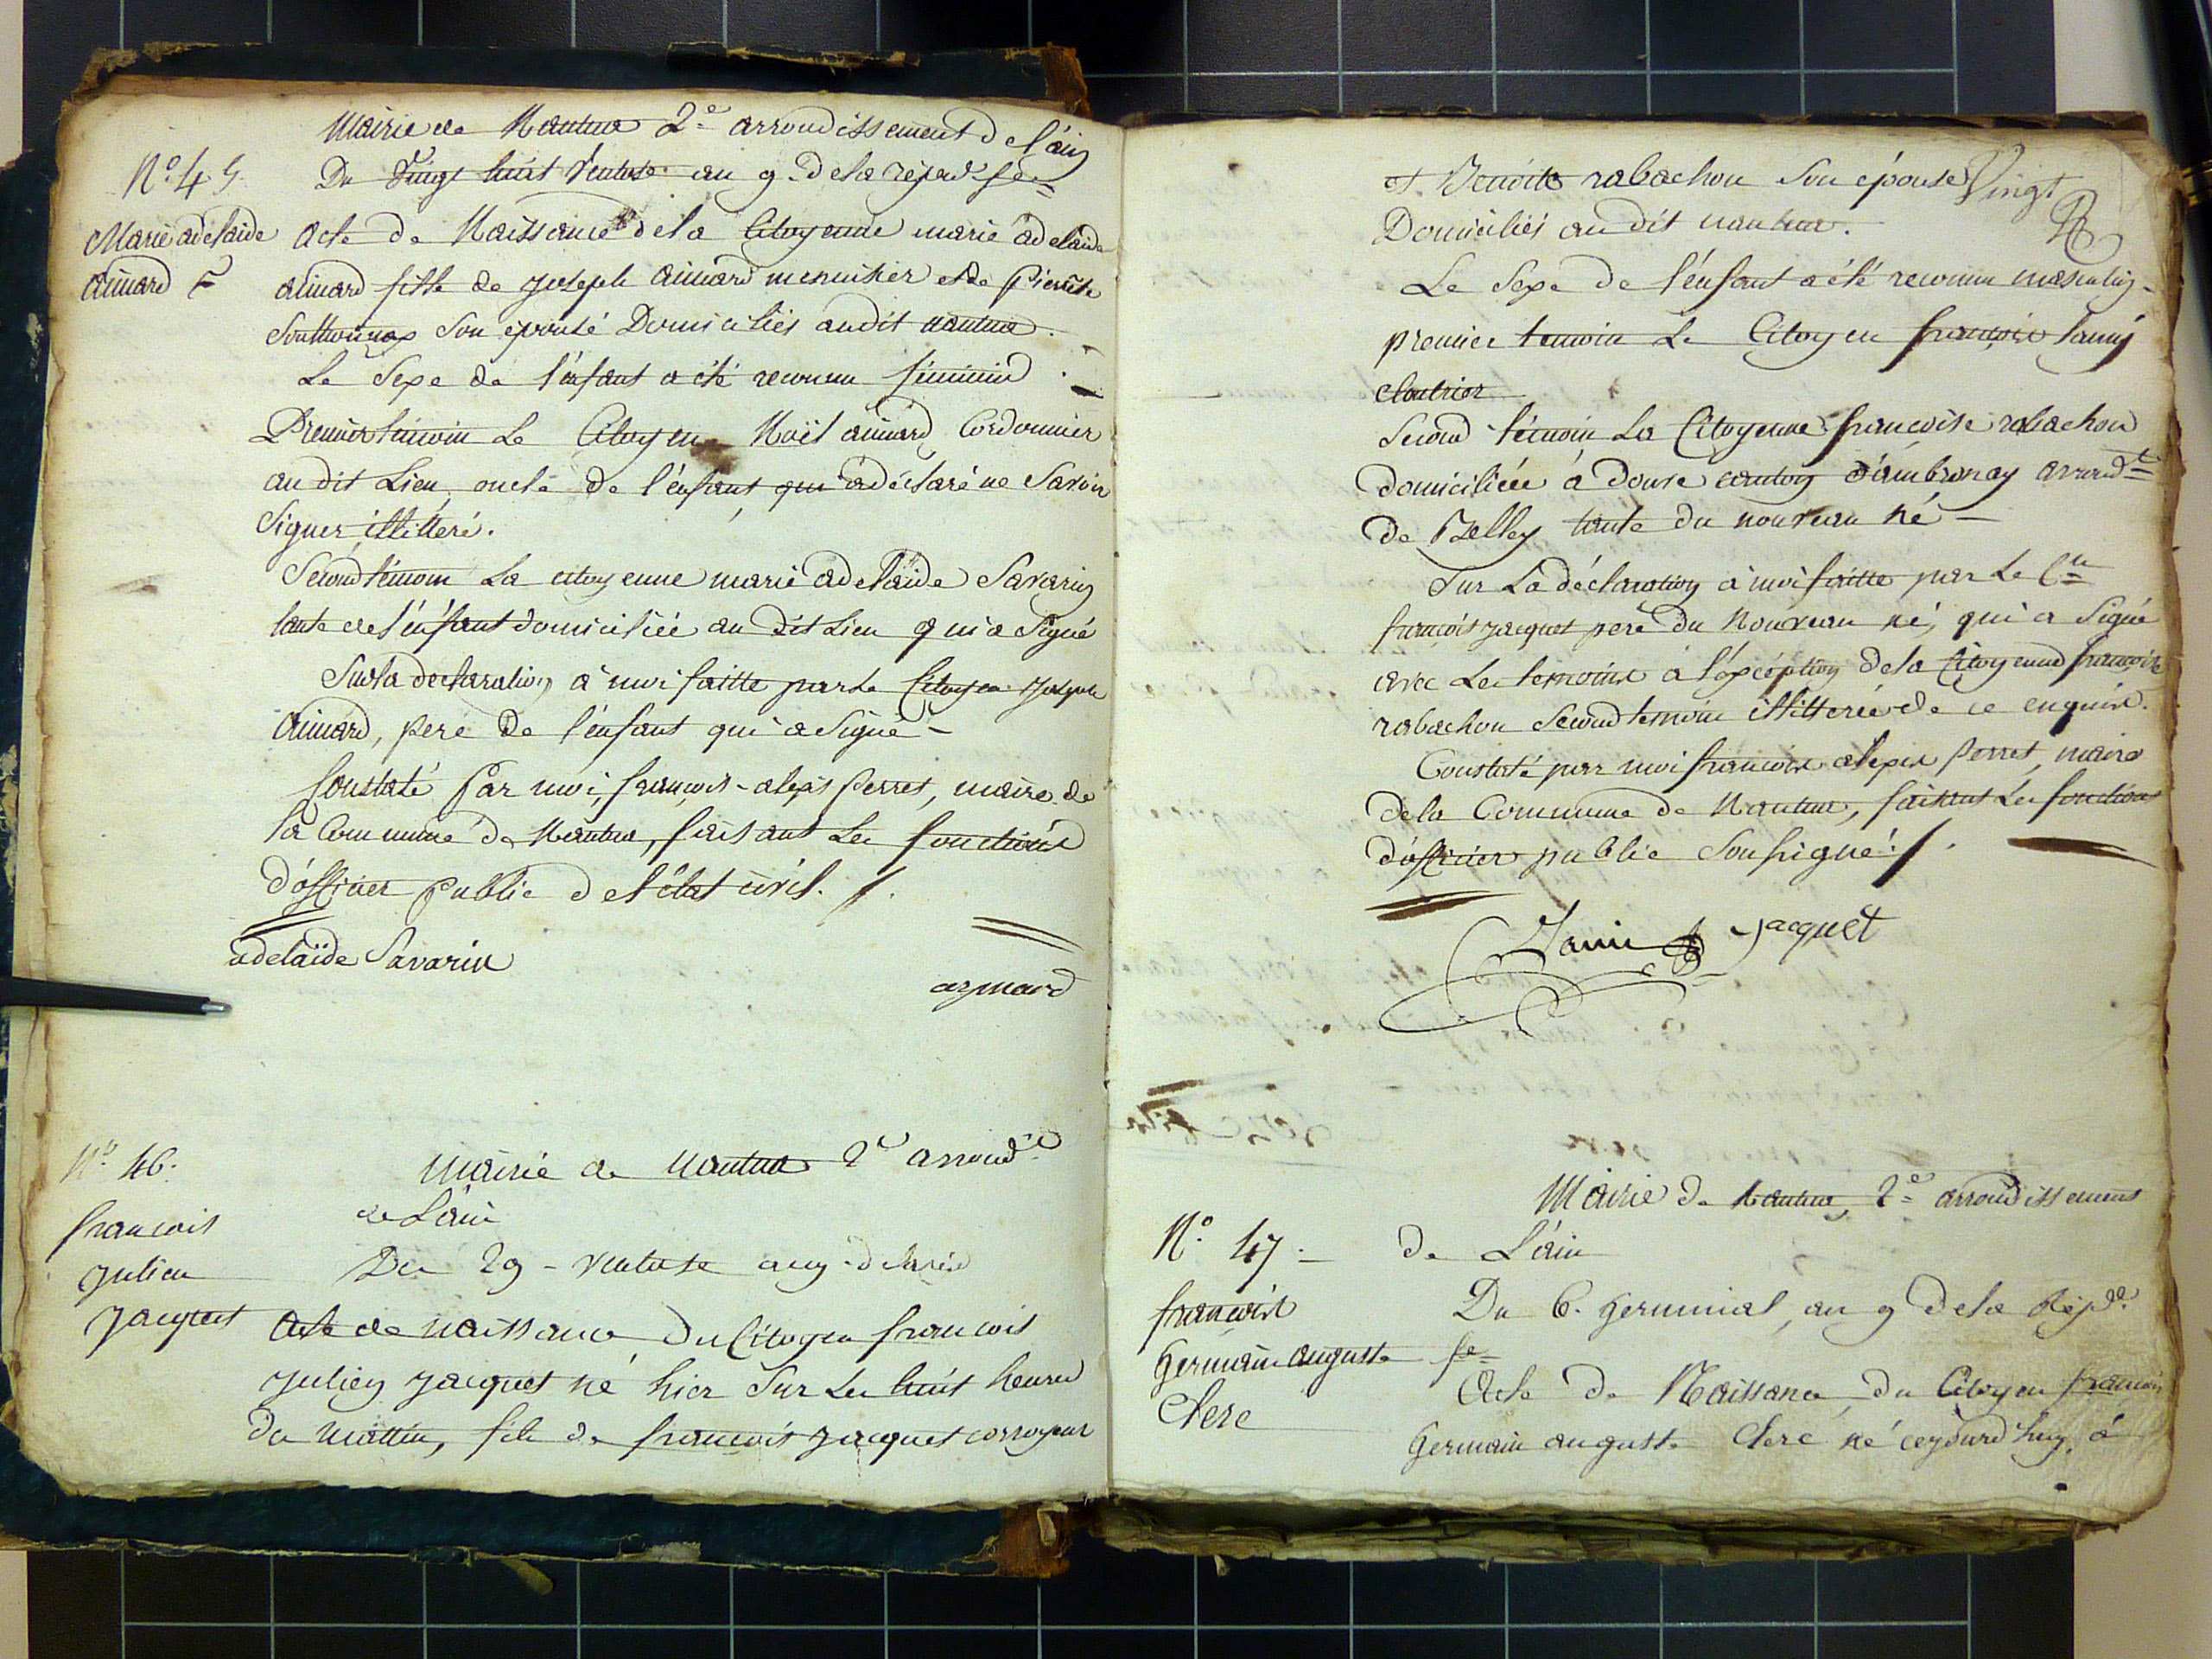 Mairie de Nantua 2e arrondissement de l'ain
N° 45
Du Vingt huit Ventose an 9. de la répub. fse
Marie adelaide
aimard F
Acte de Naissance de la Citoyenne marie adelaide
aimard fille de joseph aimard menuisier et de Pierrette
Southonnax son épouse Domiciliés audit nantua.
Le Sexe de l'énfant a été reconnu féminin.
Premier témoin Le Citoyen Noël aimard Cordonnier
au dit Lieu, oncle de l'énfant, qui a déclaré ne Savoir
Signer illitteré.
Second témoin La citoyenne marie adelaïde Savarin
tante de l'énfant domiciliée au dit Lieu qui a Signé
Sur la declaration à moi faitte par Le Citoyen joseph
Aimard, pere de l'énfant qui a Signé -
Constaté Par moi, françois-alexis Perret, maire de
la Commune de Nantua, faisant Les fonctions
d'officier public de l'état civil. /.
adelaïde Savarin
aymard
N° 46.
francois
julien
jacquet
Mairie de Nantua 2e arrondt
de L'ain
Du 29 - Ventose an 9. de la rép
Acte de naissance du Citoyen francois
julien jacquet né hier Sur Les huit heures
du mattin, fils de françois jacquet corroyeur
et Benoite rabachon Son épouse
Vingt
Domiciliés au dit nantua.
Le Sexe de l'énfant a été reconnu masculin -
premier temoin Le Citoyen françois Janin
cloutrier
Second témoin La Citoyenne françoise rabachon
domiciliée à Douvre canton d'ambronay arrondt
de Belley tante du nouveau né -
Sur La déclaration à moi faitte par Le Cen
françois jacquet pere du Nouveau né, qui a Signé
avec Les temoins à l'éxception de la Citoyenne françoise
rabachon Second temoin illitterée de ce enquise.
Constaté par moi françois alexis Perret, maire
de la Commune de Nantua, faisant Les fonctions
d'officier public Soussigné: /.
Janin jacquet
Mairie de Nantua, 2e arrondissement
N° 47. -
de L'ain
françois
Germain auguste
Clerc
Du 6. Germinal, an 9 de la Répue
fse
Acte de Naissance, du Citoyen francois
Germain auguste Clerc né cejourd'huy, à